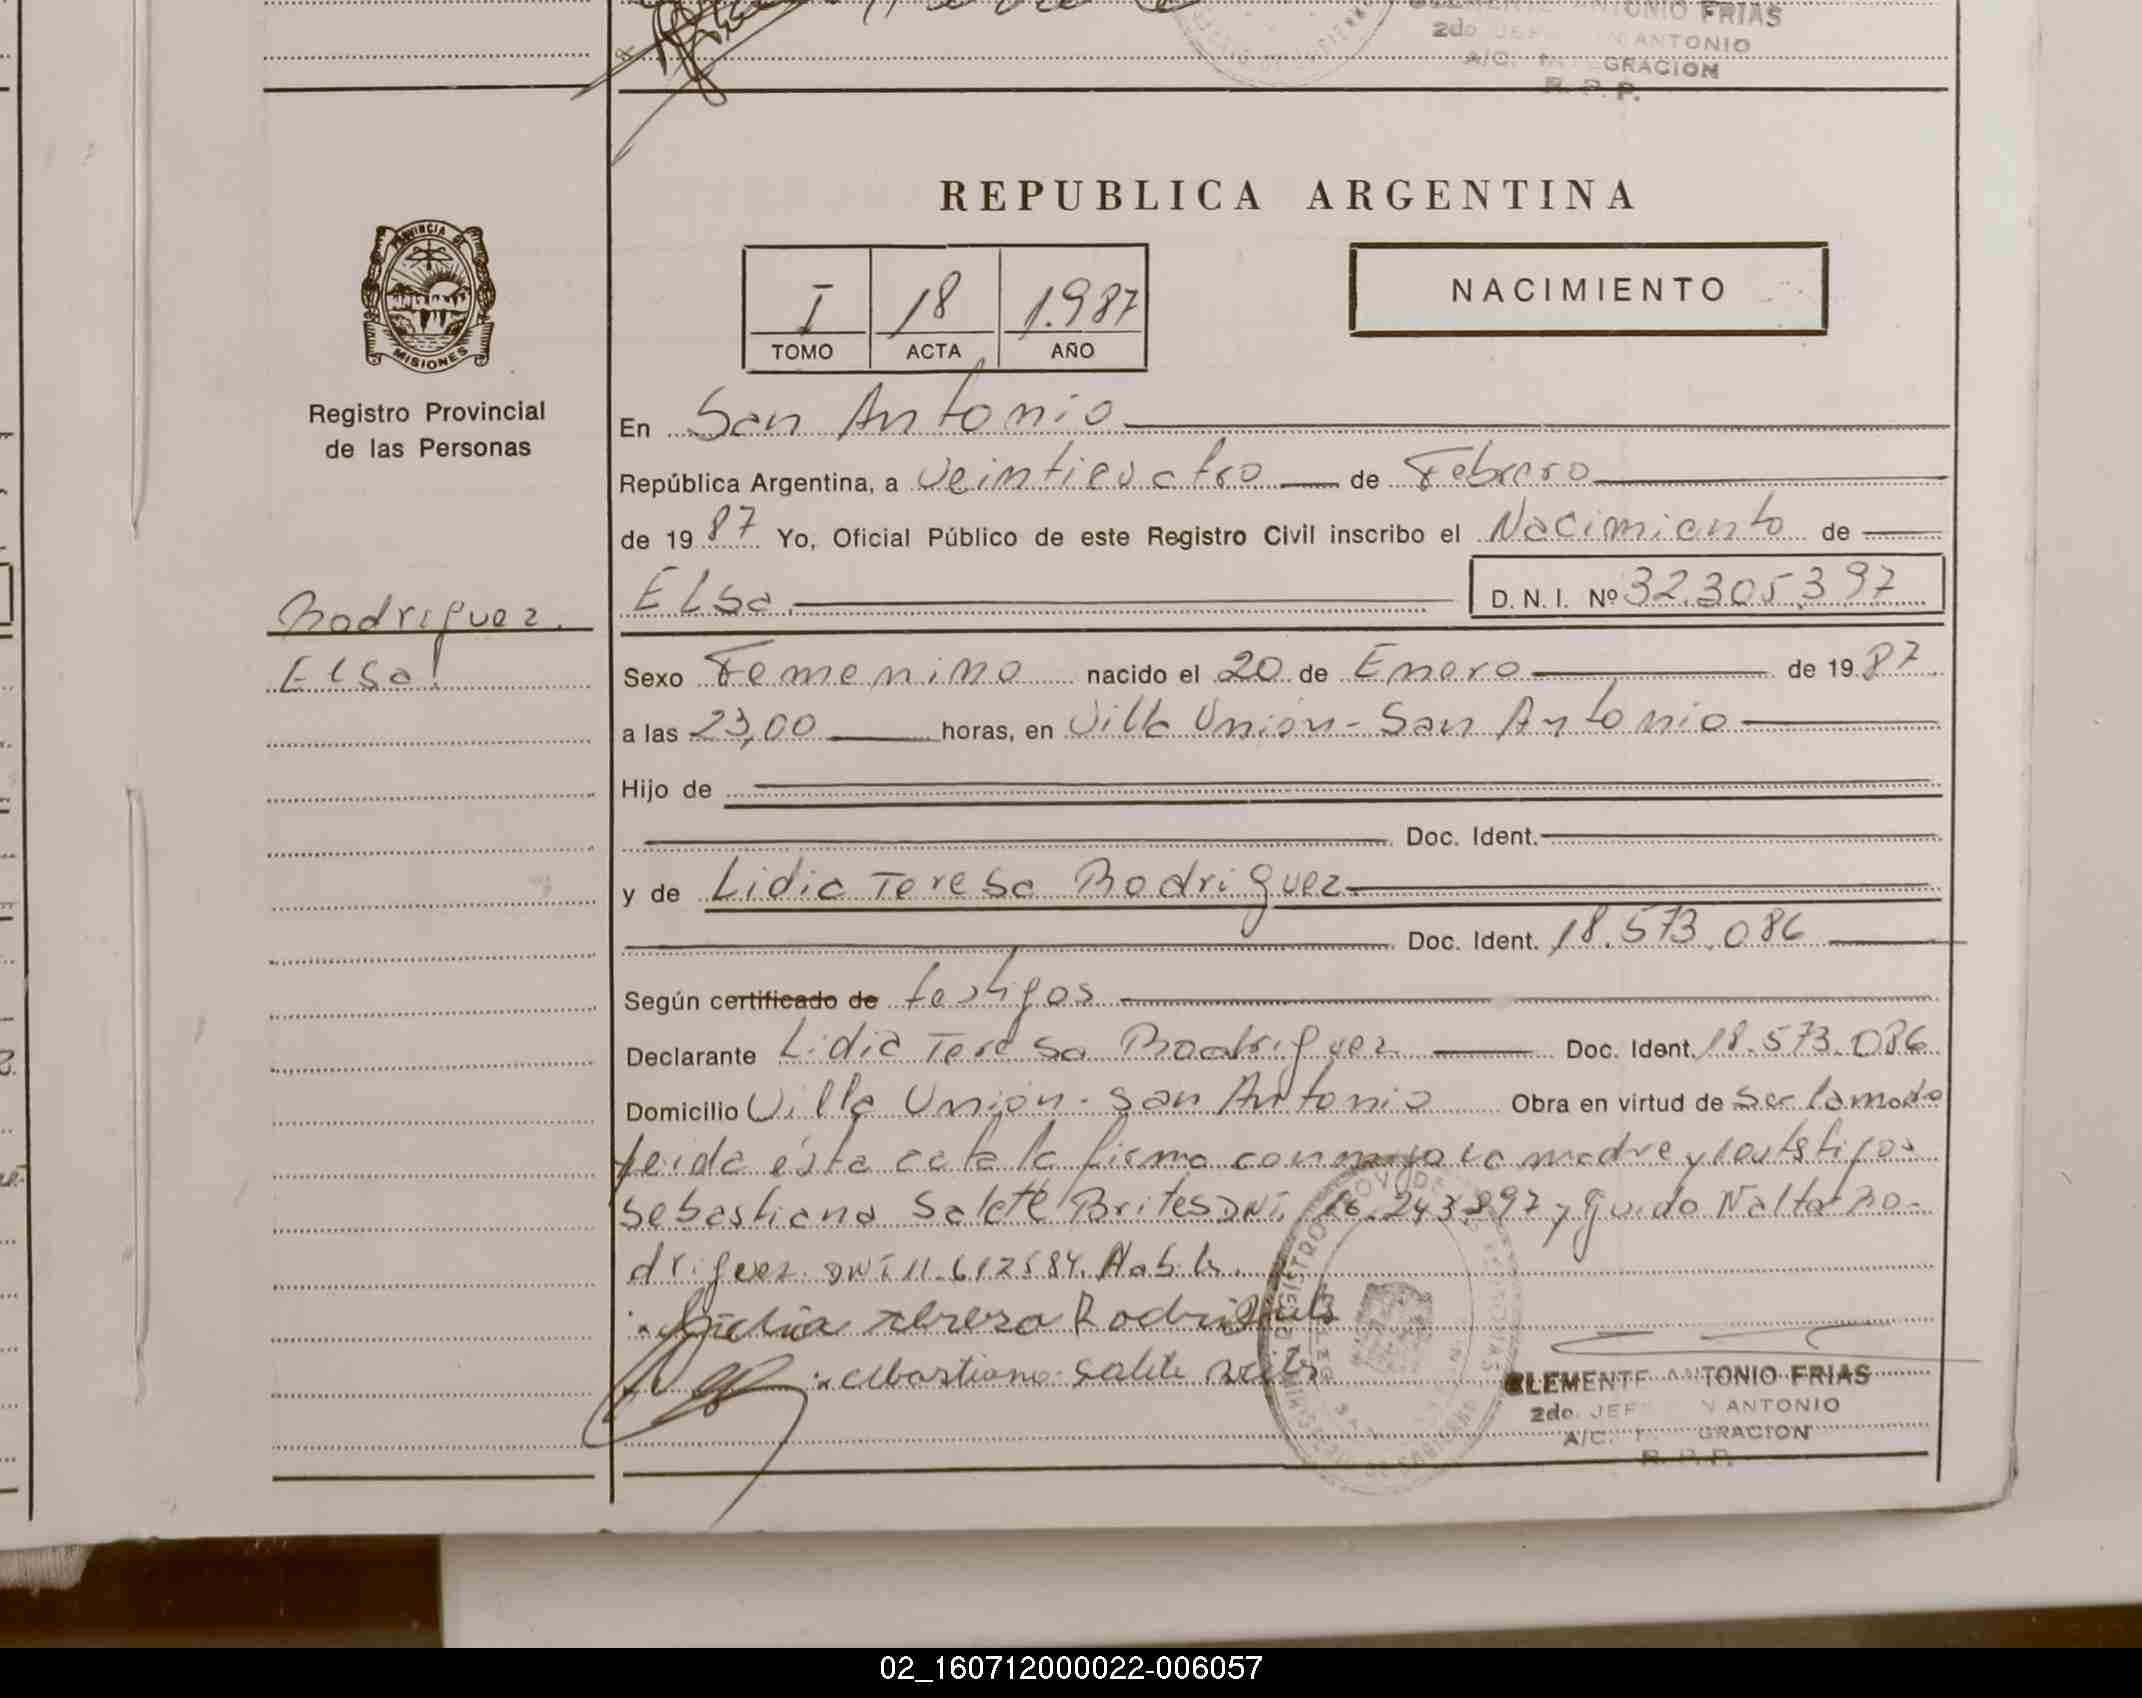 CLEMENTE ANTONIO FRIAS
2do JEF N ANTONIO
A/C. GRACION
R. P. P.
REPUBLICA ARGENTINA
PROVINCIA DE
MISIONES
Registro Provincial
de las Personas
I 18 1.987
TOMO ACTA AÑO
NACIMIENTO
En San Antonio
República Argentina, a veinticuatro de Febrero
de 19 87 Yo, Oficial Público de este Registro Civil inscribo el Nacimiento de
Elsa D. N. I. Nº 32.305.397
Rodriguez.
Elsa
Sexo Femenino nacido el 20 de Enero de 19 87
a las 23,00 horas, en Villa Unión - San Antonio
Hijo de
Doc. Ident.
y de Lidia Teresa Rodriguez
Doc. Ident. 18.573.086
Según certificado de testigos
Declarante Lidia Teresa Rodriguez Doc. Ident. 18.573.086
Domicilio Villa Unión - San Antonio Obra en virtud de ser la madre
Leida ésta acta la firma conmigo la madre y los testigos
Sebastiana Salete Brites DNI. 16.243.897 y Guido Ro-
driguez DNI 11.612584. Habiles.
Lidia teresa Rodriguez
Sebastiana Salete Brites
CLEMENTE ANTONIO FRIAS
2do. JEF N ANTONIO
A/C. GRACION
R. P. P.
02_160712000022-006057